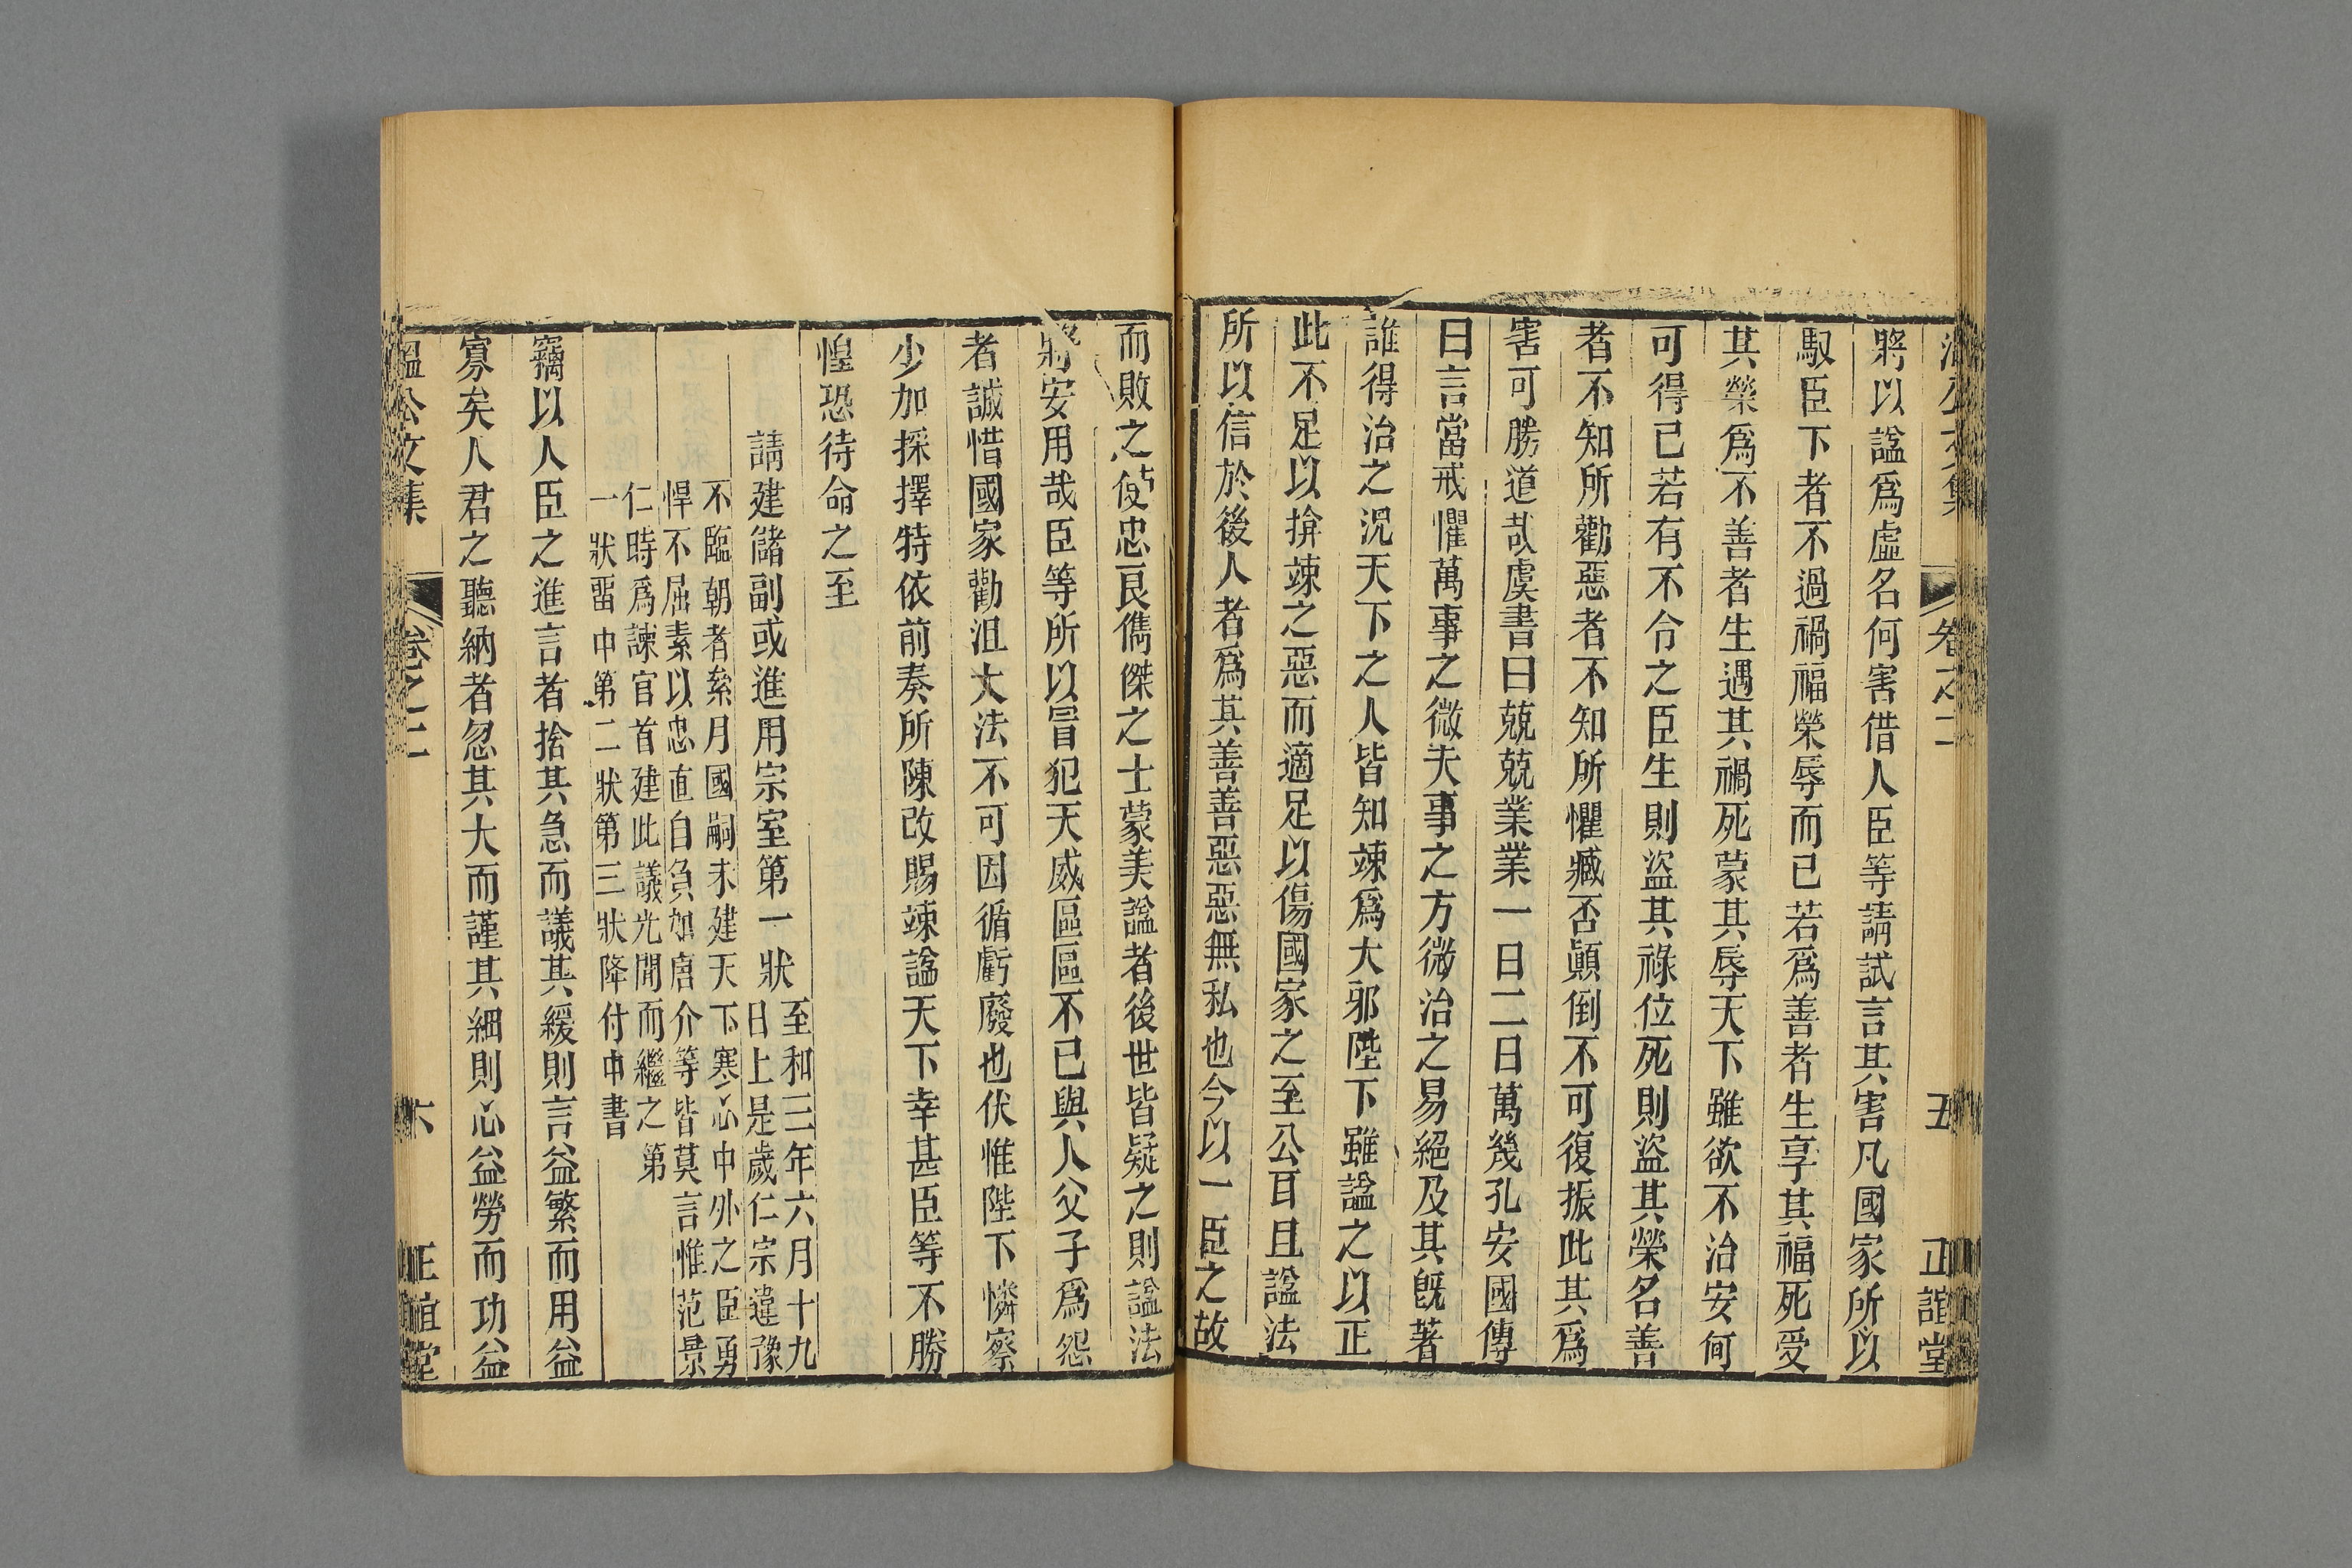 溫公文集 卷之二 五 正誼堂
將以諡爲虛名何害借人臣等請試言其害凡國家所以
馭臣下者不過禍福榮辱而已若爲善者生享其福死受
其榮爲不善者生遇其禍死蒙其辱天下雖欲不治安何
可得已若有不令之臣生則盜其祿位死則盜其榮名善
者不知所勸惡者不知所懼臧否顚倒不可復振此其爲
害可勝道哉虞書曰兢兢業業一日二日萬幾孔安國傳
曰言當戒懼萬事之微夫事之方微治之易絕及其旣著
誰得治之況天下之人皆知竦爲大邪陛下雖諡之以正
此不足以揜竦之惡而適足以傷國家之至公耳且諡法
所以信於後人者爲其善善惡惡無私也今以一臣之故
而敗之使忠良儁傑之士蒙美諡者後世皆疑之則諡法
將安用哉臣等所以冒犯天威區區不已與人父子爲怨
者誠惜國家勸沮大法不可因循虧廢也伏惟陛下憐察
少加採擇特依前奏所陳改賜竦諡天下幸甚臣等不勝
惶恐待命之至
請建儲副或進用宗室第一狀
至和三年六月十九
日上是歲仁宗違豫
不臨朝者絫月國嗣未建天下寒心中外之臣勇
悍不屈素以忠直自負如唐介等皆莫言惟范景
仁時爲諫官首建此議光聞而繼之第
一狀畱中第二狀第三狀降付中書
竊以人臣之進言者捨其急而議其緩則言益繁而用益
寡矣人君之聽納者忽其大而謹其細則心益勞而功益
溫公文集 卷之二 六 正誼堂